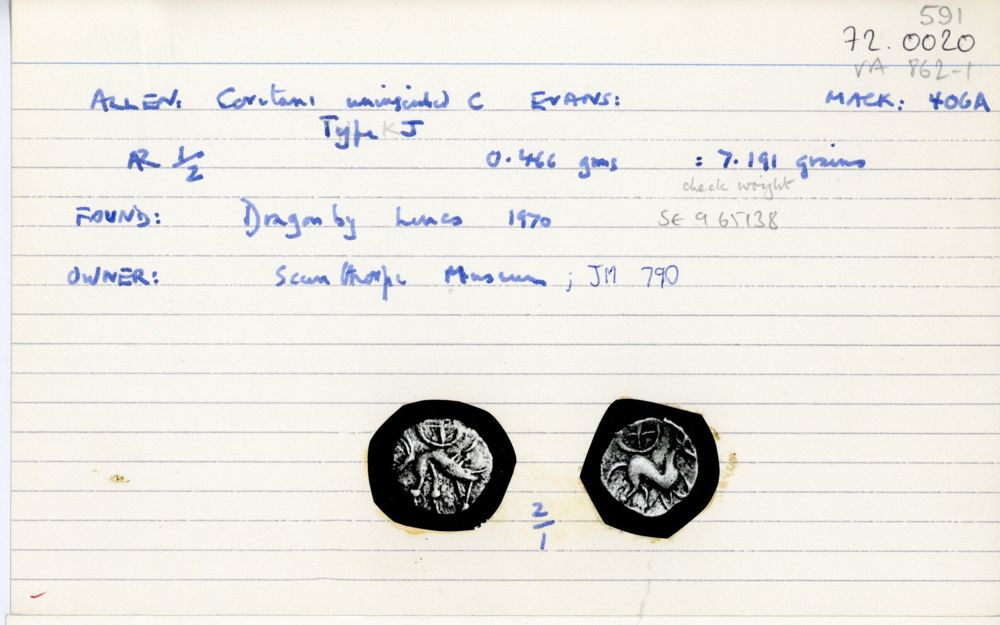 591
72.0020
VA 862-1
ALLEN: Coritani uninscribed C EVANS: MACK: 406A
Type K J
AR 1/2 0.466 gms : 7.191 grains
check weight
FOUND: Dragonby Lincs 1970 SE 965138
OWNER: Scunthorpe Museum ; JM 790
2/1